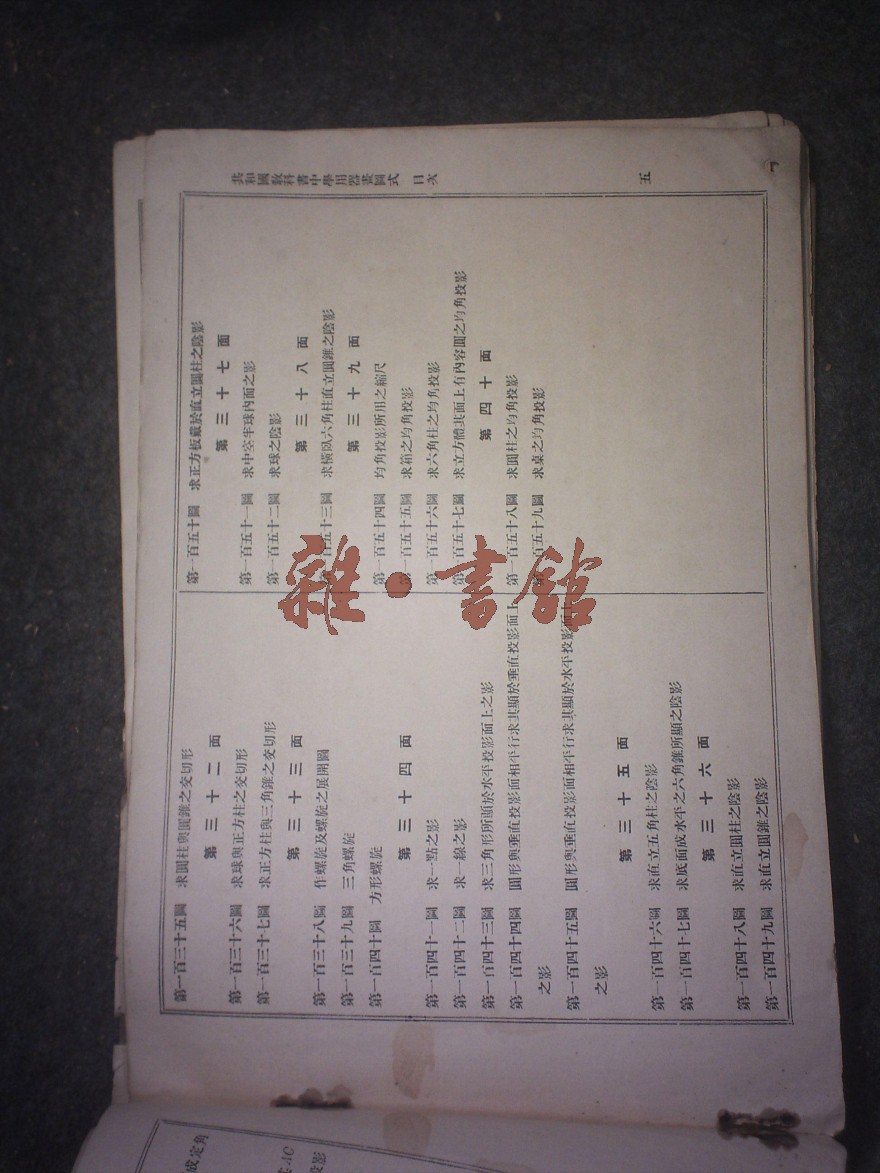 共和國教科書中學用器畫圖式 目次
五
第一百三十五圖 求圓柱與圓錐之交切形
第三十二面
第一百三十六圖 求球與正方柱之交切形
第一百三十七圖 求正方柱與三角錐之交切形
第三十三面
第一百三十八圖 作螺旋及螺旋之展開圖
第一百三十九圖 三角螺旋
第一百四十圖 方形螺旋
第三十四面
第一百四十一圖 求一點之影
第一百四十二圖 求一線之影
第一百四十三圖 求三角形所顯於水平投影面上之影
第一百四十四圖 圓形與垂直投影面相平行求其顯於垂直投影面上
之影
第一百四十五圖 圓形與垂直投影面相平行求其顯於水平投影面上
之影
第三十五面
第一百四十六圖 求直立五角柱之陰影
第一百四十七圖 求底面成水平之六角錐所顯之陰影
第三十六面
第一百四十八圖 求直立圓柱之陰影
第一百四十九圖 求直立圓錐之陰影
第一百五十圖 求正方板戴於直立圓柱之陰影
第三十七面
第一百五十一圖 求中空半球內面之影
第一百五十二圖 求球之陰影
第三十八面
第一百五十三圖 求橫臥六角柱直立圓錐之陰影
第三十九面
第一百五十四圖 均角投影所用之縮尺
第一百五十五圖 求箱之均角投影
第一百五十六圖 求六角柱之均角投影
第一百五十七圖 求立方體其面上有內容圓之均角投影
第四十面
第一百五十八圖 求圓柱之均角投影
第一百五十九圖 求桌之均角投影
雜·書館
成定角
AC
投影